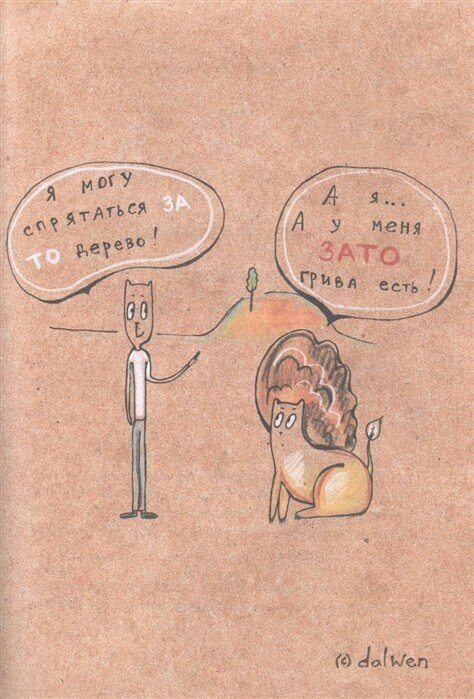 Я могу
спрятаться ЗА
ТО дерево!
А я...
А у меня
ЗАТО
грива есть!
(c) dalwen